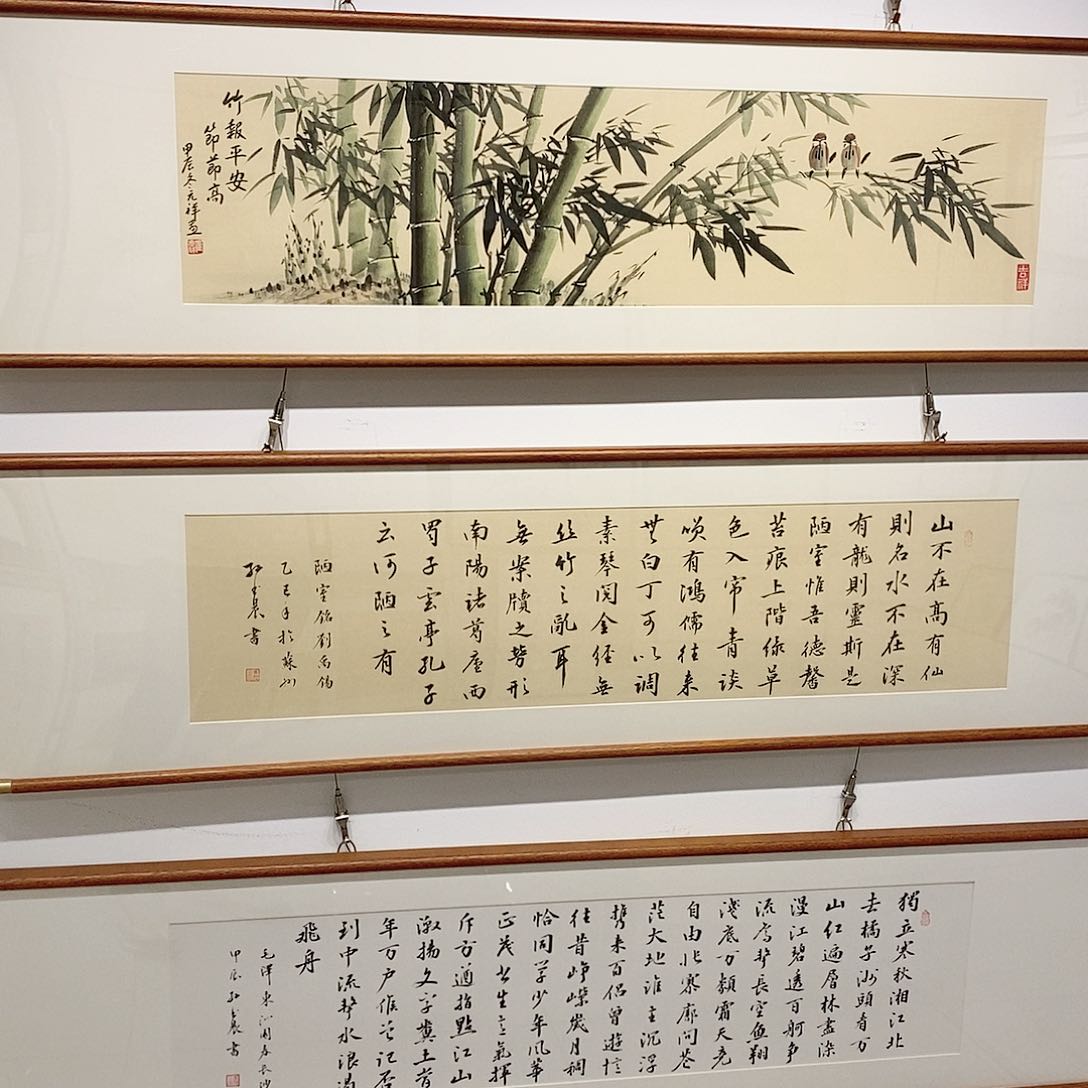 竹報平安
節節高
甲辰冬元祥画
吉祥
山不在高有仙
則名水不在深
有龍則靈斯是
陋室惟吾德馨
苔痕上階绿草
色入帘青談
唉有鴻儒往来
無白丁可以調
素琴閱金經無
丝竹之亂耳
無案牘之勞形
南陽諸葛廬西
蜀子雲亭孔子
云何陋之有
陋室铭劉禹锡
乙巳年於蘇州
書
獨立寒秋湘江北
去橘子洲頭看万
山红遍層林盡染
漫江碧透百舸争
流鹰擊長空魚翔
淺底万類霜天竞
自由怅寥廓问苍
茫大地谁主沉浮
携来百侣曾遊忆
往昔峥嵘歲月稠
恰同学少年风華
正茂书生意氣揮
斥方遒指點江山
激揚文字糞土當
年万户侯曾记否
到中流擊水浪遏
飛舟
毛泽東沁園春長沙
甲辰
書